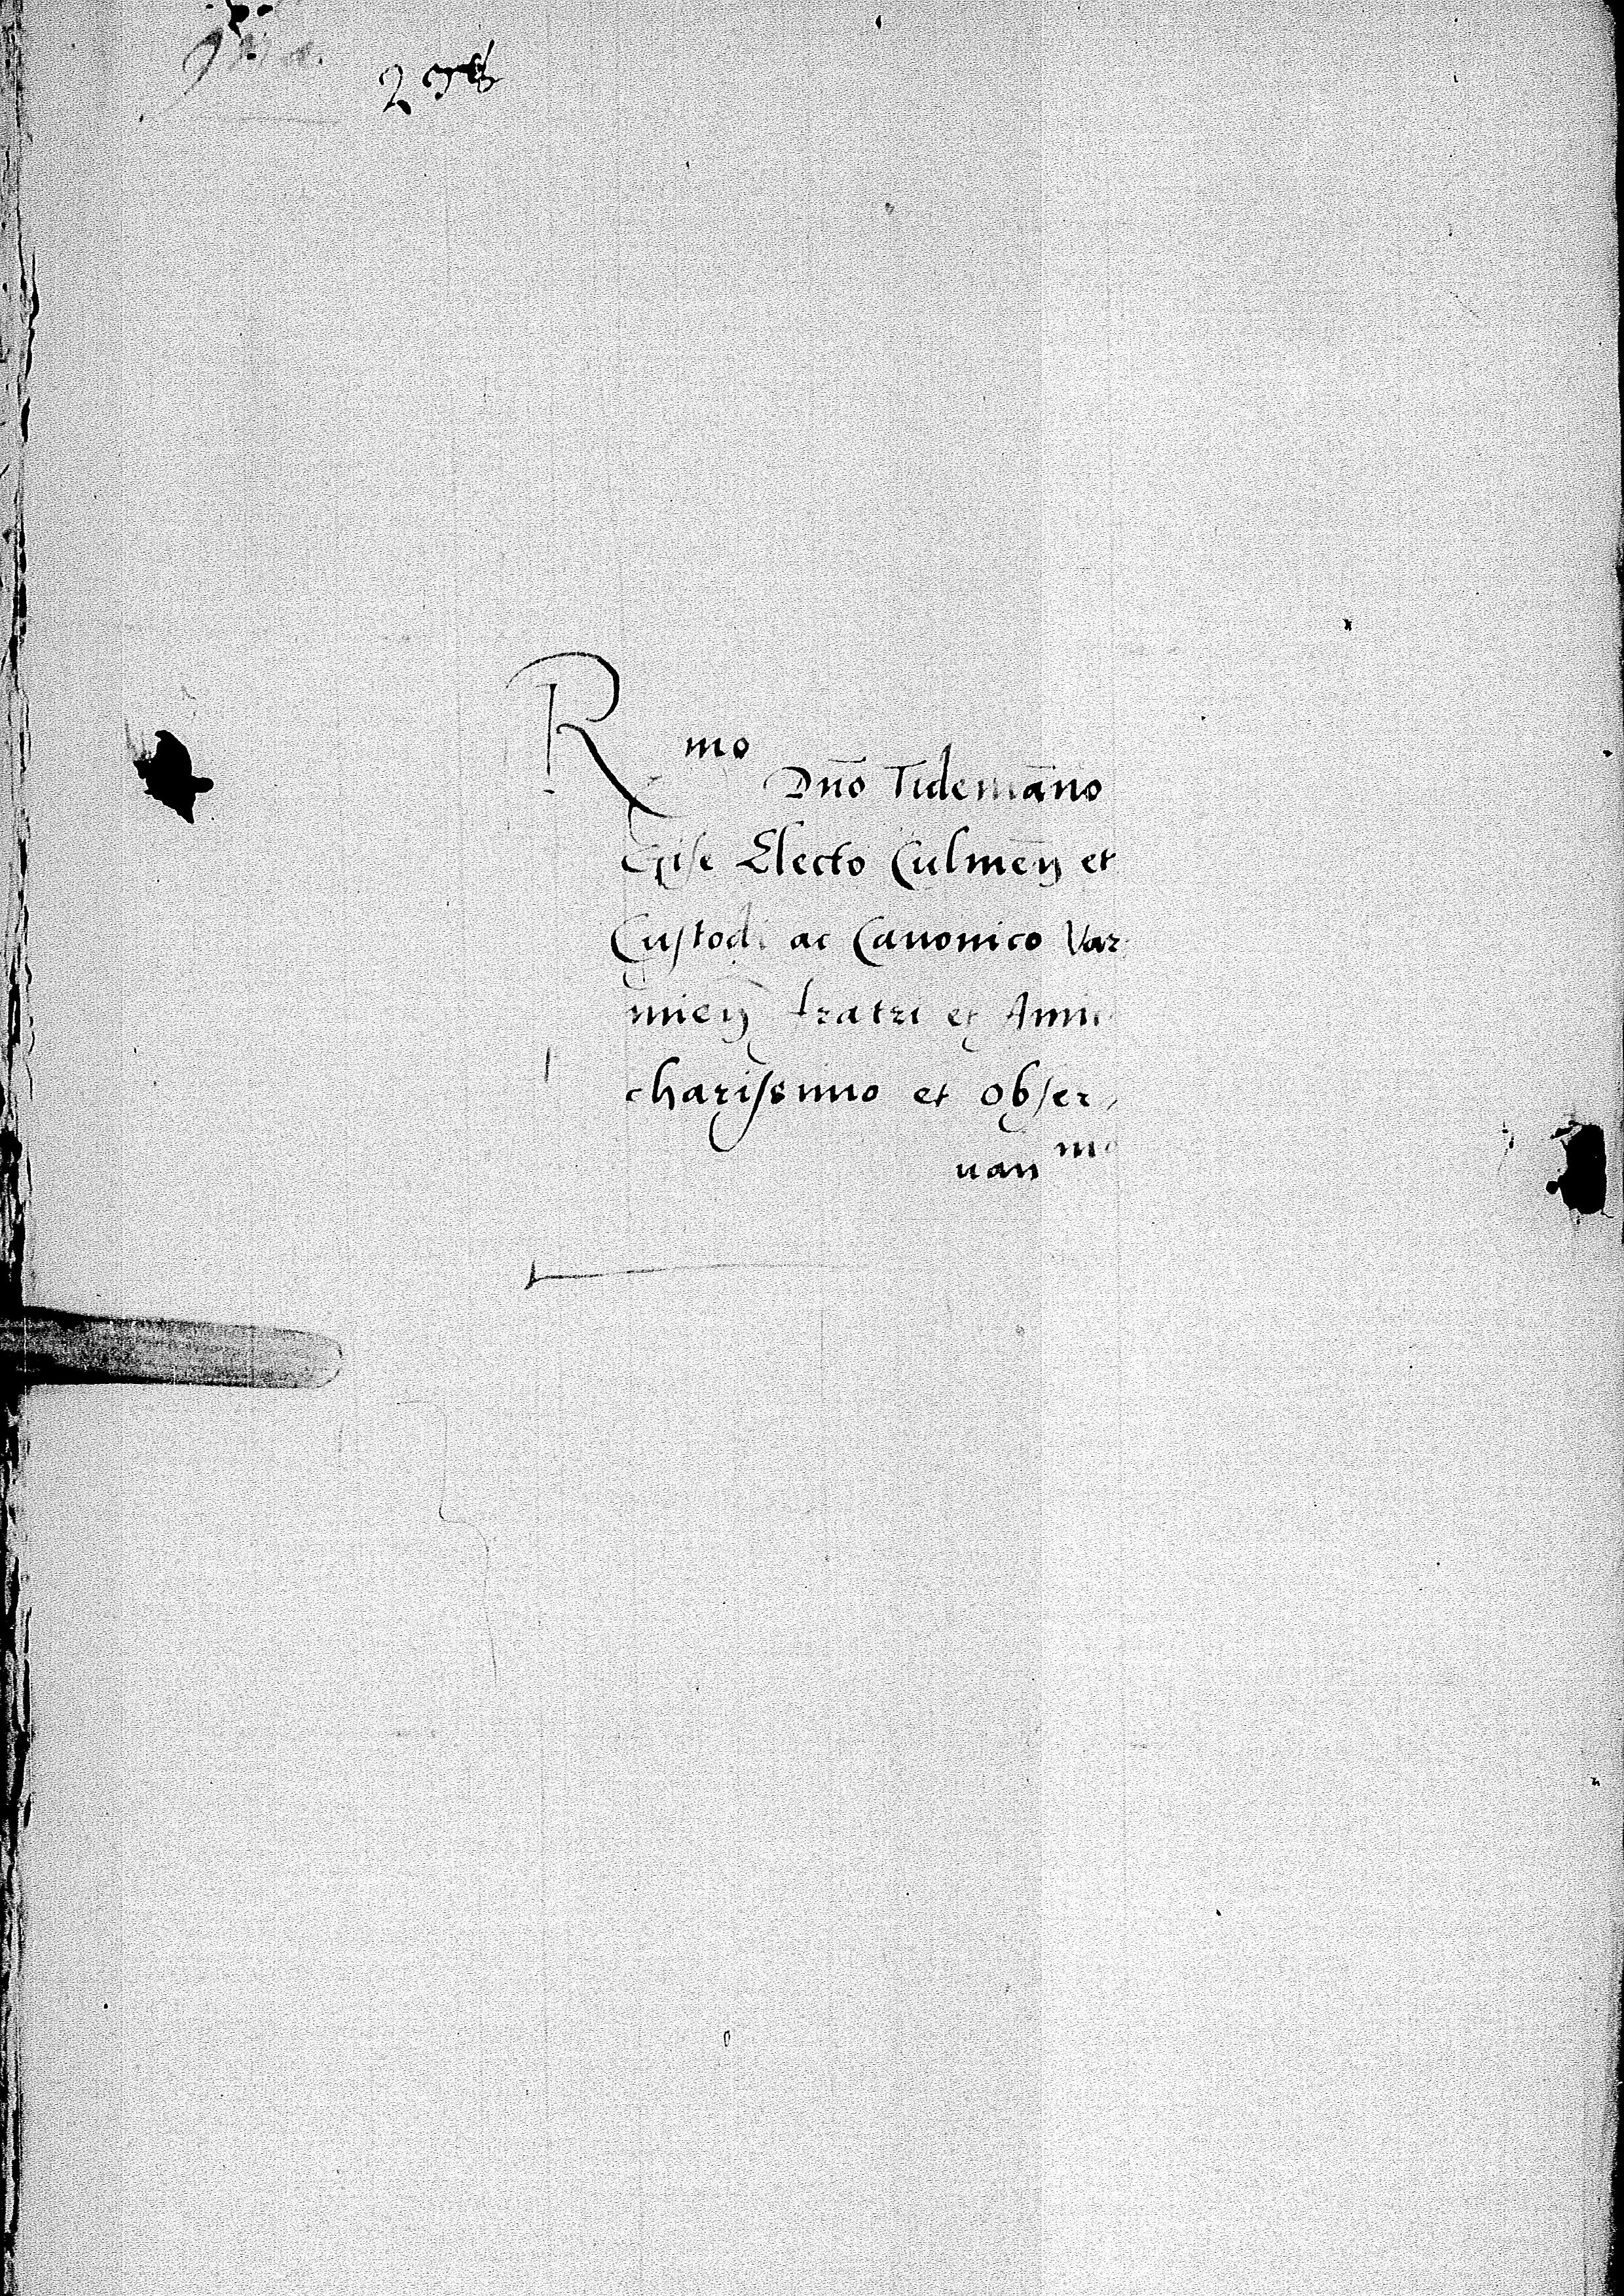 R mo
Dn̄o Tidemāno
Gise Electo Culmen̄ et
Custodi ac Canonico Var
mien̄ fratri et Amic
charissimo et obser
uan mo